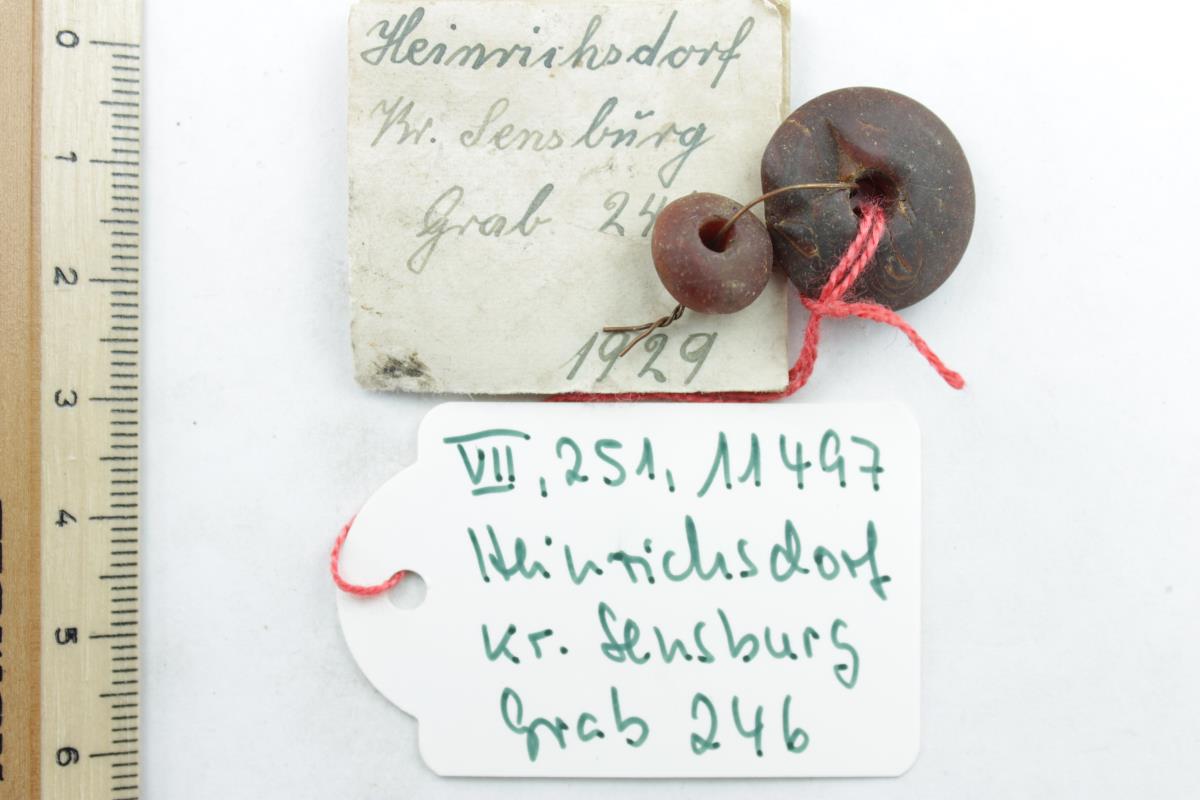 Heinrichsdorf
Kr. Sensburg
Grab 24
1929
VII, 251, 11497
Heinrichsdorf
Kr. Sensburg
Grab 246
0
1
2
3
4
5
6